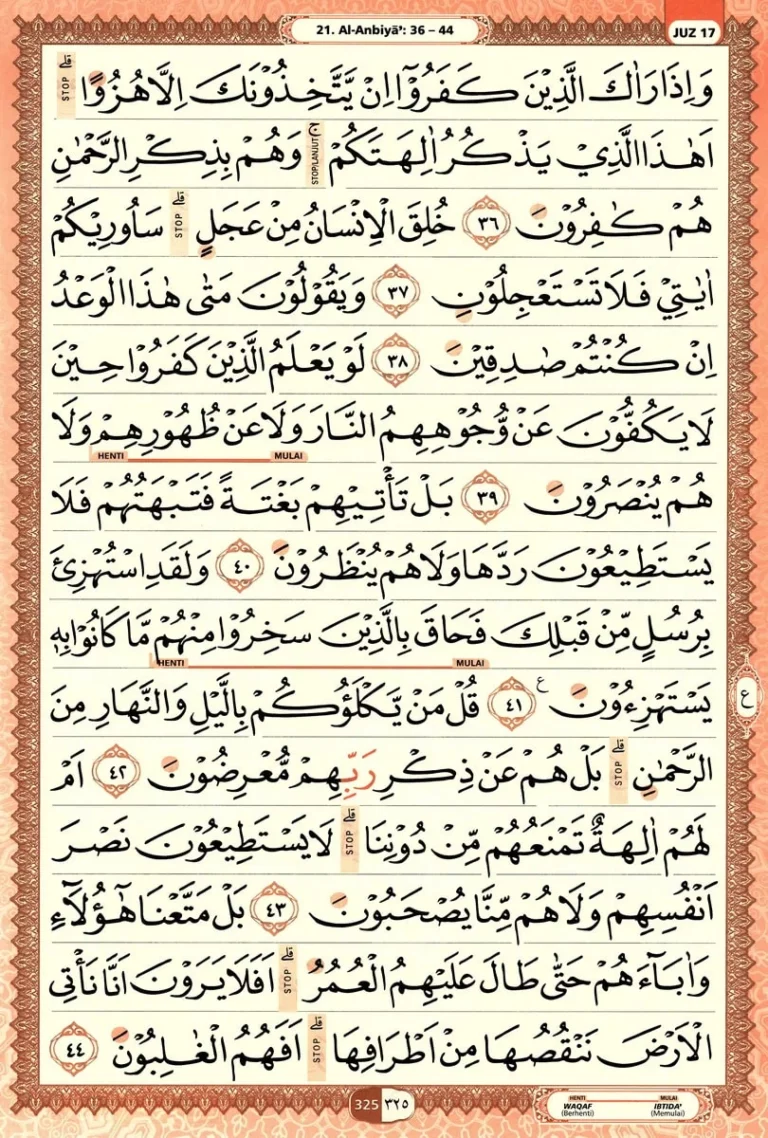 21. Al-Anbiyā’: 36 – 44
JUZ 17
وَاِذَا رَاٰكَ الَّذِيْنَ كَفَرُوْٓا اِنْ يَّتَّخِذُوْنَكَ اِلَّا هُزُوًاۗ STOP
اَهٰذَا الَّذِيْ يَذْكُرُ اٰلِهَتَكُمْۚ STOP/LANJUT وَهُمْ بِذِكْرِ الرَّحْمٰنِ
هُمْ كٰفِرُوْنَ ٣٦ خُلِقَ الْاِنْسَانُ مِنْ عَجَلٍۗ STOP سَاُورِيْكُمْ
اٰيٰتِيْ فَلَا تَسْتَعْجِلُوْنِ ٣٧ وَيَقُوْلُوْنَ مَتٰى هٰذَا الْوَعْدُ
اِنْ كُنْتُمْ صٰدِقِيْنَ ٣٨ لَوْ يَعْلَمُ الَّذِيْنَ كَفَرُوْا حِيْنَ
لَا يَكُفُّوْنَ عَنْ وُّجُوْهِهِمُ النَّارَ وَلَا عَنْ ظُهُوْرِهِمْ وَلَا
MULAI HENTI
هُمْ يُنْصَرُوْنَ ٣٩ بَلْ تَأْتِيْهِمْ بَغْتَةً فَتَبْهَتُهُمْ فَلَا
يَسْتَطِيْعُوْنَ رَدَّهَا وَلَا هُمْ يُنْظَرُوْنَ ٤٠ وَلَقَدِ اسْتُهْزِئَ
بِرُسُلٍ مِّنْ قَبْلِكَ فَحَاقَ بِالَّذِيْنَ سَخِرُوْا مِنْهُمْ مَّا كَانُوْا بِهٖ
MULAI HENTI
يَسْتَهْزِءُوْنَ ٤١ ࣖ قُلْ مَنْ يَّكْلَؤُكُمْ بِالَّيْلِ وَالنَّهَارِ مِنَ
ع
الرَّحْمٰنِۗ STOP بَلْ هُمْ عَنْ ذِكْرِ رَبِّهِمْ مُّعْرِضُوْنَ ٤٢ اَمْ
لَهُمْ اٰلِهَةٌ تَمْنَعُهُمْ مِّنْ دُوْنِنَاۗ STOP لَا يَسْتَطِيْعُوْنَ نَصْرَ
اَنْفُسِهِمْ وَلَا هُمْ مِّنَّا يُصْحَبُوْنَ ٤٣ بَلْ مَتَّعْنَا هٰٓؤُلَاۤءِ
وَاٰبَاۤءَهُمْ حَتّٰى طَالَ عَلَيْهِمُ الْعُمُرُۗ STOP اَفَلَا يَرَوْنَ اَنَّا نَأْتِى
الْاَرْضَ نَنْقُصُهَا مِنْ اَطْرَافِهَاۗ STOP اَفَهُمُ الْغٰلِبُوْنَ ٤٤
325 ٣٢٥
HENTI MULAI
WAQAF IBTIDA'
(Berhenti) (Memulai)